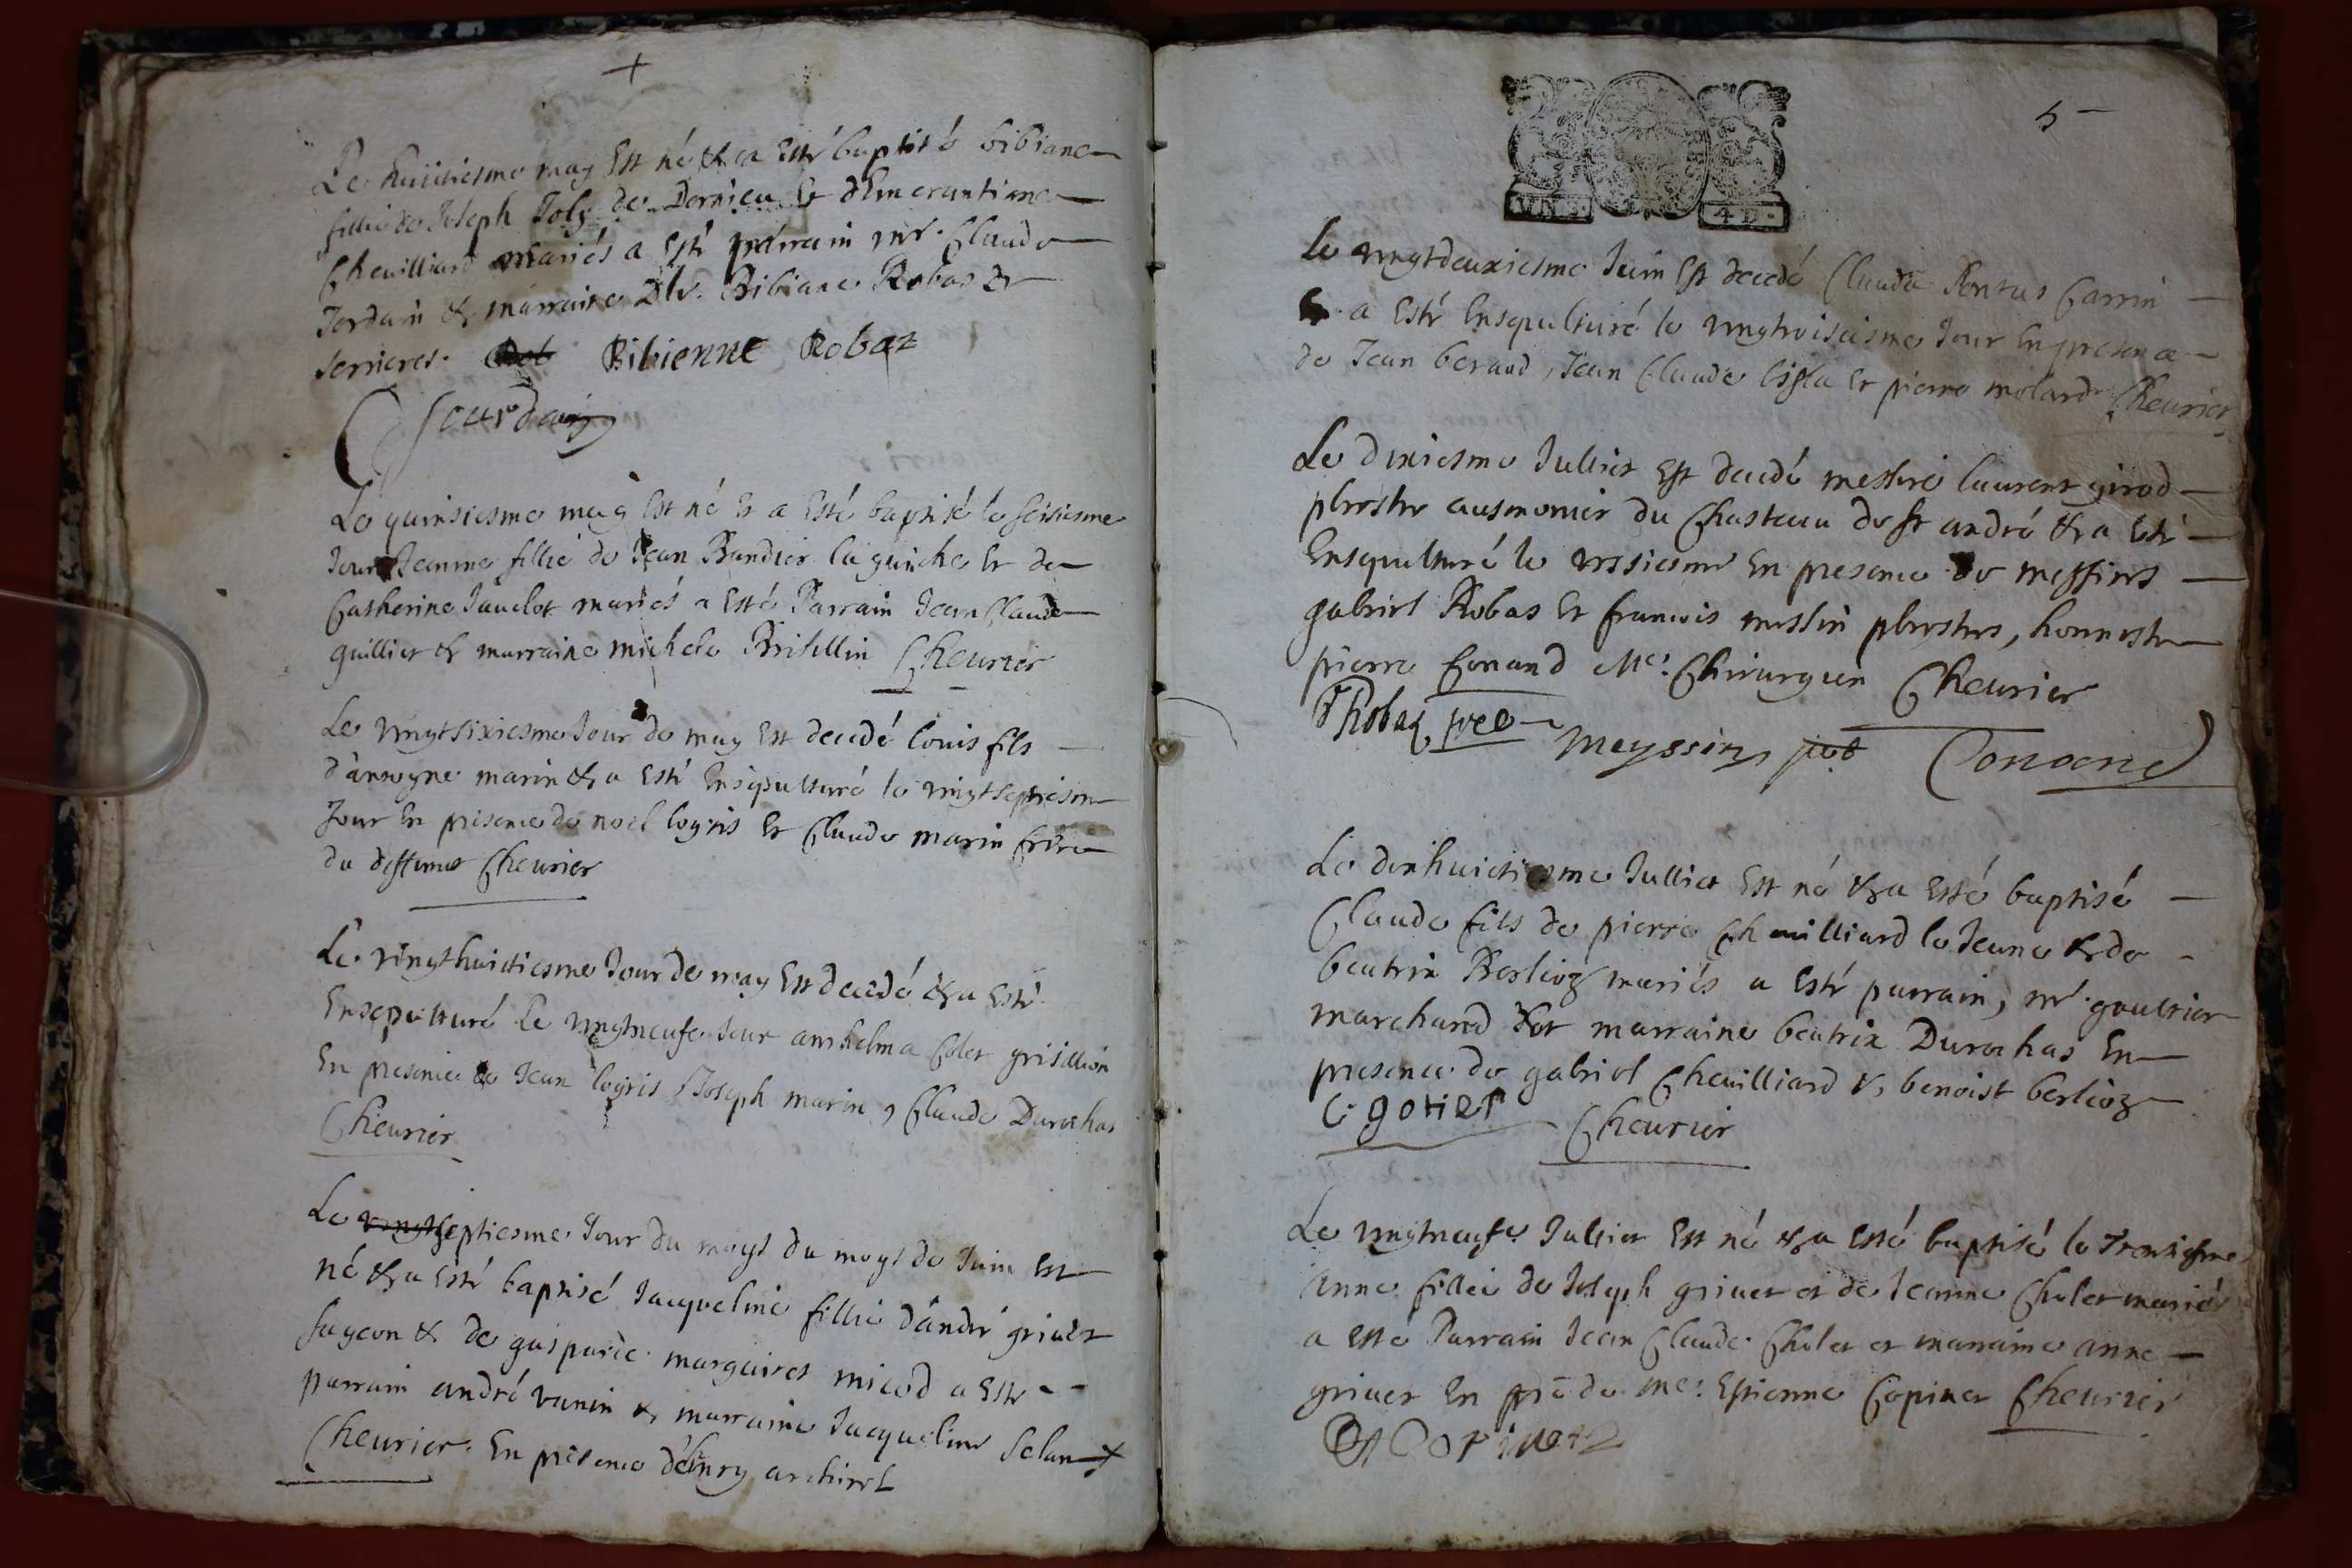 Le huitiesme may Est né & a Esté baptisé bibiane
fillie de Joseph Joly de Dornieu Et dEmerantiane
Cheuilliard mariés a Esté parrain mr. Claude
Jordain & marraine Dlle. Bibiane Robas de
serrieres. Rob Bibienne Robaz
C Jourdain
Le quinsiesme may Est né Et a Esté baptisé le seisiesme
Jour Jeanne fillie de Jean Bandier la guiche Et de
Catherine Jauelot mariés a Esté Parrain Jean Claude
guillier & marraine michele Brisellin Cheurier
Le vingtsixiesme Jour de may Est decedé louis fils
d'antoyne marin & a Esté Ensepulturé le vingtseptiesme
Jour En presence de noel logris Et Claude marin frere
du deffunct Cheurier
Le vingthuictiesme Jour de may Est decedé & a Esté
Ensepulturé Le vingtneufe Jour anthelma Colet grisillion
En presence de Jean logris, Joseph marin, Claude Durochas
Cheurier
Le vingtseptiesme Jour du moys du moys de Juin Est
né & a Esté baptisé Jacqueline fillie d'andré griuet
fayeon & de gasparde margairet micod a Esté
parrain andré vanin & marraine Jacqueline selan
Cheurier. En presence d'henry archirel
5
VN S. 4 D.
Le vingtdeuxiesme Juin Est decedé Claude Pontus Carrin
Et a Esté Ensepulturé le vingtroisiesme Jour En presence
de Jean beraud, Jean Claude lisfla Et pierre molard Cheurier
Le dixiesme Julliet Est decedé messire laurent girod
prestre ausmonier du Chasteau de st andré & a Esté
Ensepulturé le onsiesme En presence de messires
gabriel Robas Et francois messin prestres, honneste
pierre Conand Me. Chirurgien Cheurier
Robaz pre Meyssin pbt Conand
Le dixhuictiesme Julliet Est né & a Esté baptisé
Claude fils de pierre Cheuilliard le Jeune & de
beatrix Berlioz mariés a Esté parrain, mr. gaultier
marchand Et marraine beatrix Durochas En
presence de gabriel Cheuilliard & benoist berlioz
C. gotier Cheurier
Le vingtneufe Julliet Est né & a Esté baptisé le Trentiesme
Anne fillie de Joseph griuet et de Jeanne Cholet mariés
a esté Parrain Jean Claude Cholet et marraine anne
griuet En pñce de me. Estienne Copinet Cheurier
E Copinet